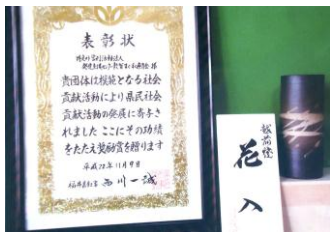 表彰状
貴団体は模範となる社会
貢献活動により県民社会
貢献活動の発展に寄与さ
れました ここにその功績
をたたえ奨励賞を贈ります
平成 年11月9日
福井県知事 西川一誠
越前焼
花入